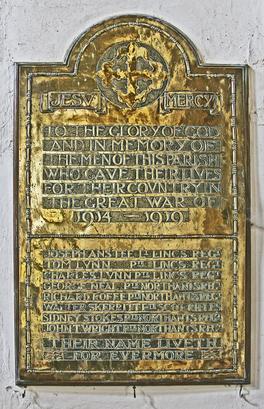 JESV MERCY
TO THE GLORY OF GOD
AND IN MEMORY OF
THE MEN OF THIS PARISH
WHO GAVE THEIR LIVES
FOR THEIR COVNTRY IN
THE GREAT WAR OF
1914 — 1919
JOSEPH ANSTEE LINCS. REGT
TOM LYNN PTE LINCS. REGT
CHARLES LYNN PTE LINCS. REGT
GEORGE NEAL PTE NORTHANTS. REGT
RICHARD PTE NORTHANTS. REGT
WALTER PTE RIFLES
SIDNEY STOKES PTE NORTHANTS. REGT
JOHN T. WRIGHT PTE NORTHANTS. REGT
THEIR NAME LIVETH
FOR EVERMORE